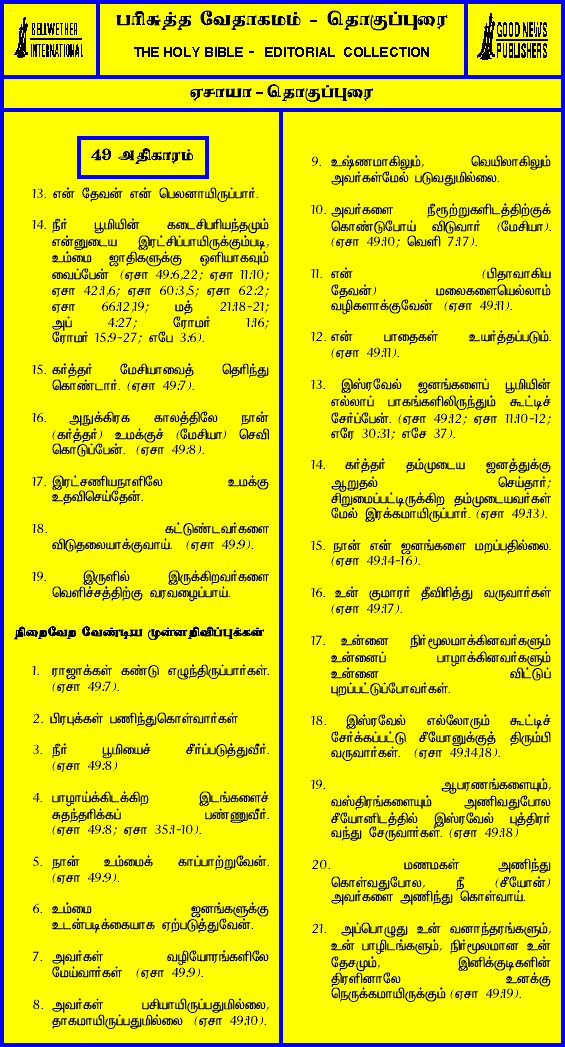 BELLWETHER
INTERNATIONAL
பரிசுத்த வேதாகமம் - தொகுப்புரை
THE HOLY BIBLE - EDITORIAL COLLECTION
GOOD NEWS
PUBLISHERS
ஏசாயா - தொகுப்புரை
49 அதிகாரம்
13. என் தேவன் என் பெலனாயிருப்பார்.
14. நீர் பூமியின் கடைசிபரியந்தமும்
என்னுடைய இரட்சிப்பாயிருக்கும்படி,
உம்மை ஜாதிகளுக்கு ஒளியாகவும்
வைப்பேன் (ஏசா 49:6,22; ஏசா 11:10;
ஏசா 42:1,6; ஏசா 60:3,5; ஏசா 62:2;
ஏசா 66:12,19; மத் 21:18-21;
அப் 4:27; ரோமர் 1:16;
ரோமர் 15:9-27; எபே 3:6).
15. கர்த்தர் மேசியாவைத் தெரிந்து
கொண்டார். (ஏசா 49:7).
16. அநுக்கிரக காலத்திலே நான்
(கர்த்தர்) உமக்குச் (மேசியா) செவி
கொடுப்பேன். (ஏசா 49:8).
17. இரட்சணியநாளிலே உமக்கு
உதவிசெய்தேன்.
18. கட்டுண்டவர்களை
விடுதலையாக்குவாய். (ஏசா 49:9).
19. இருளில் இருக்கிறவர்களை
வெளிச்சத்திற்கு வரவழைப்பாய்.
நிறைவேற வேண்டிய முன்னறிவிப்புக்கள்
1. ராஜாக்கள் கண்டு எழுந்திருப்பார்கள்.
(ஏசா 49:7).
2. பிரபுக்கள் பணிந்துகொள்வார்கள்
3. நீர் பூமியைச் சீர்ப்படுத்துவீர்.
(ஏசா 49:8)
4. பாழாய்க்கிடக்கிற இடங்களைச்
சுதந்தரிக்கப் பண்ணுவீர்.
(ஏசா 49:8; ஏசா 35:1-10).
5. நான் உம்மைக் காப்பாற்றுவேன்.
(ஏசா 49:9).
6. உம்மை ஜனங்களுக்கு
உடன்படிக்கையாக ஏற்படுத்துவேன்.
7. அவர்கள் வழியோரங்களிலே
மேய்வார்கள் (ஏசா 49:9).
8. அவர்கள் பசியாயிருப்பதுமில்லை,
தாகமாயிருப்பதுமில்லை (ஏசா 49:10).
9. உஷ்ணமாகிலும், வெயிலாகிலும்
அவர்கள்மேல் படுவதுமில்லை.
10. அவர்களை நீரூற்றுகளிடத்திற்குக்
கொண்டுபோய் விடுவார் (மேசியா).
(ஏசா 49:10; வெளி 7:17).
11. என் (பிதாவாகிய
தேவன்) மலைகளையெல்லாம்
வழிகளாக்குவேன் (ஏசா 49:11).
12. என் பாதைகள் உயர்த்தப்படும்.
(ஏசா 49:11).
13. இஸ்ரவேல் ஜனங்களைப் பூமியின்
எல்லாப் பாகங்களிலிருந்தும் கூட்டிச்
சேர்ப்பேன். (ஏசா 49:12; ஏசா 11:10-12;
எரே 30:31; எசே 37).
14. கர்த்தர் தம்முடைய ஜனத்துக்கு
ஆறுதல் செய்தார்;
சிறுமைப்பட்டிருக்கிற தம்முடையவர்கள்
மேல் இரக்கமாயிருப்பார். (ஏசா 49:13).
15. நான் என் ஜனங்களை மறப்பதில்லை.
(ஏசா 49:14-16).
16. உன் குமாரர் தீவிரித்து வருவார்கள்
(ஏசா 49:17).
17. உன்னை நிர்மூலமாக்கினவர்களும்
உன்னைப் பாழாக்கினவர்களும்
உன்னை விட்டுப்
புறப்பட்டுப்போவர்கள்.
18. இஸ்ரவேல் எல்லோரும் கூட்டிச்
சேர்க்கப்பட்டு சீயோனுக்குத் திரும்பி
வருவார்கள். (ஏசா 49:14,18).
19. ஆபரணங்களையும்,
வஸ்திரங்களையும் அணிவதுபோல
சீயோனிடத்தில் இஸ்ரவேல் புத்திரர்
வந்து சேருவார்கள். (ஏசா 49:18)
20. மணமகள் அணிந்து
கொள்வதுபோல, நீ (சீயோன்)
அவர்களை அணிந்து கொள்வாய்.
21. அப்பொழுது உன் வனாந்தரங்களும்,
உன் பாழிடங்களும், நிர்மூலமான உன்
தேசமும், இனிக்குடிகளின்
திரளினாலே உனக்கு
நெருக்கமாயிருக்கும் (ஏசா 49:19).